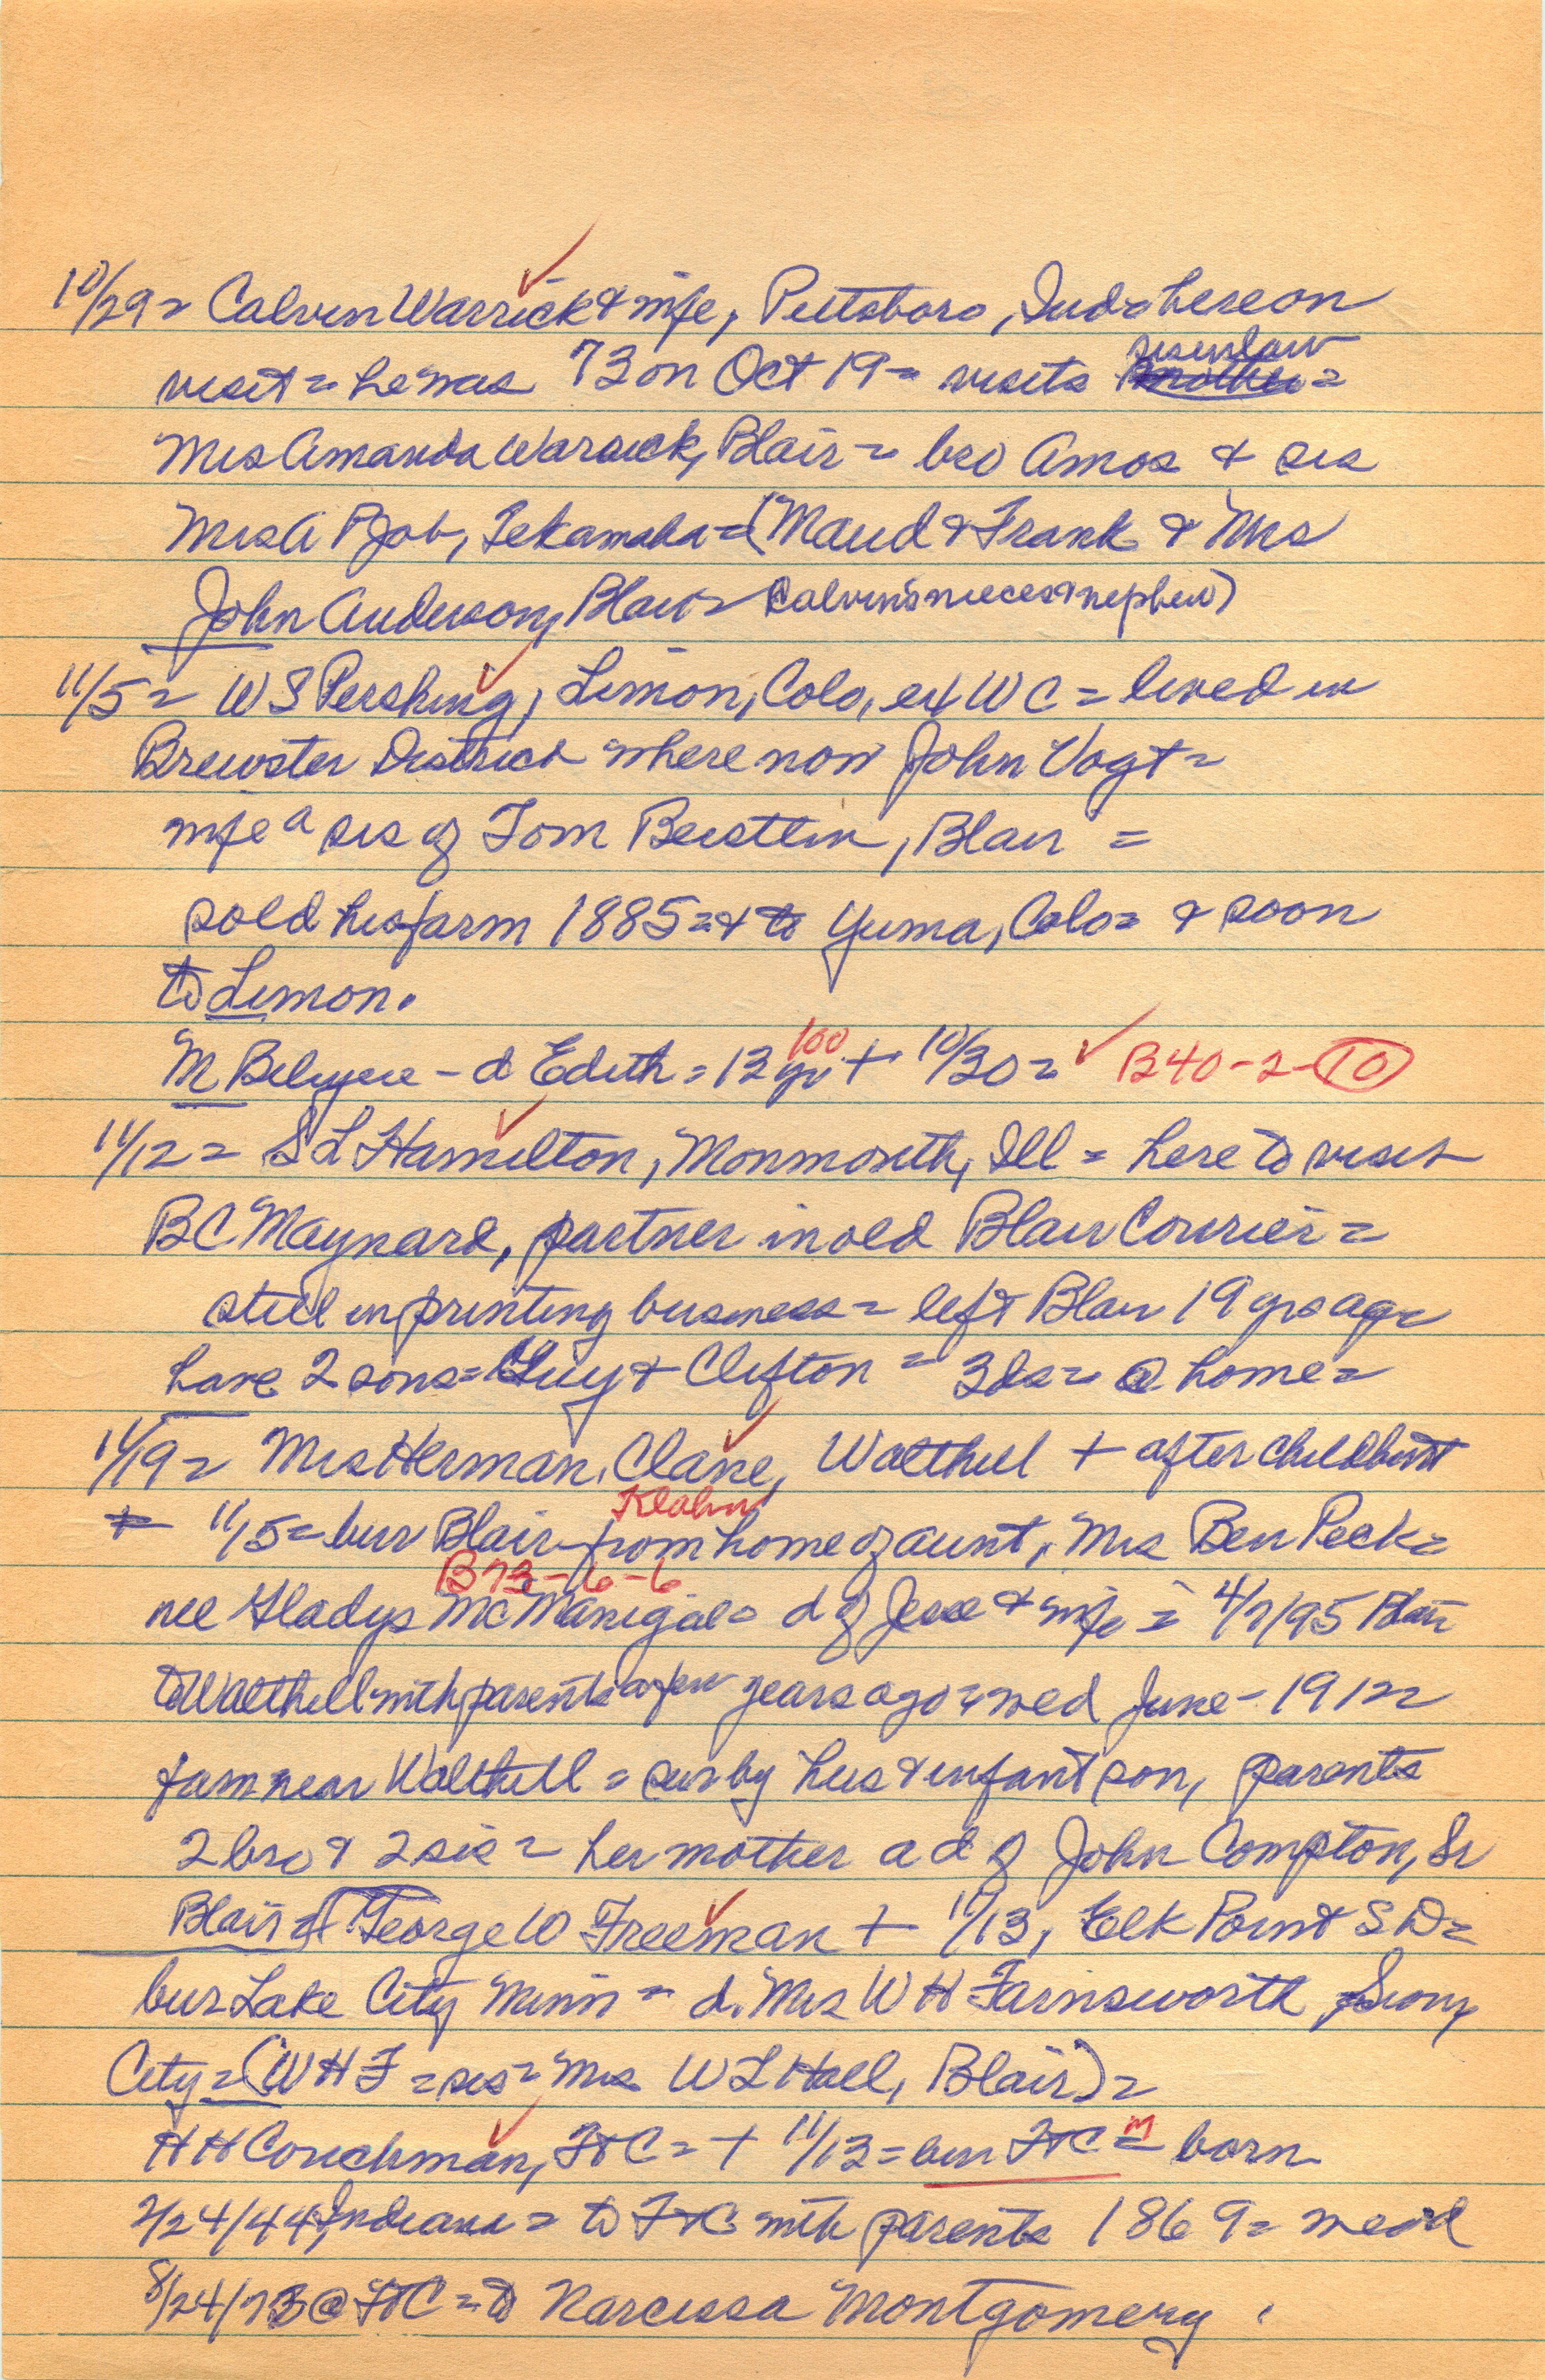 10/29 = Calvin Warrick & wife, Pittsboro, Ind = here on
visit = he was 73 on Oct 19 = visits sisinlaw =
Mrs Amanda Warrick, Blair = bro Amos & sis
Mrs A P Job, Tekamaha = (Maud & Frank & Mrs
John Anderson, Blair = Calvin's nieces & nephew)
11/5 = W S Pershing, Limon, Colo, ex WC = lived in
Brewster District where now John Vogt =
wife a sis of Tom Beistlin, Blair =
sold his farm 1885 = & to Yuma, Colo = & soon
to Limon.
100
M - d Edith = 12 yr + 10/30 = B40-2-10
11/12 = S L Hamilton, Monmouth, Ill = here to visit
BC Maynard, partner in old Blair Courier =
still in printing business = left Blair 19 yrs ago
have 2 sons = Guy & Clifton = 3 ds = @ home =
11/19 = Mrs Herman Clane, Walthill + after childbirt
Klahn
11/5 = bur Blair from home of aunt, Mrs Ben Peck =
B73-6-6
nee Gladys McManigal = d of Jesse & wife = 4/7/95 Blair
to Walthill with parents a few years ago = wed June - 1912 =
farm near Walthill = sur by hus & infant son, parents
2 bro & 2 sis = her mother a d of John Compton, Sr
Blair = George W Freeman + 11/13, Elk Point S D =
bur Lake City Minn = d. Mrs W H Farnsworth, Sioux
City = (W H F = sis = Mrs W L Hall, Blair) =
H H Couchman, FtC = + 11/13 = bur FtC = m born
2/24/44, Indiana = to FtC with parents 1869 = wed
8/24/73 @ FtC = to Narcissa Montgomery.